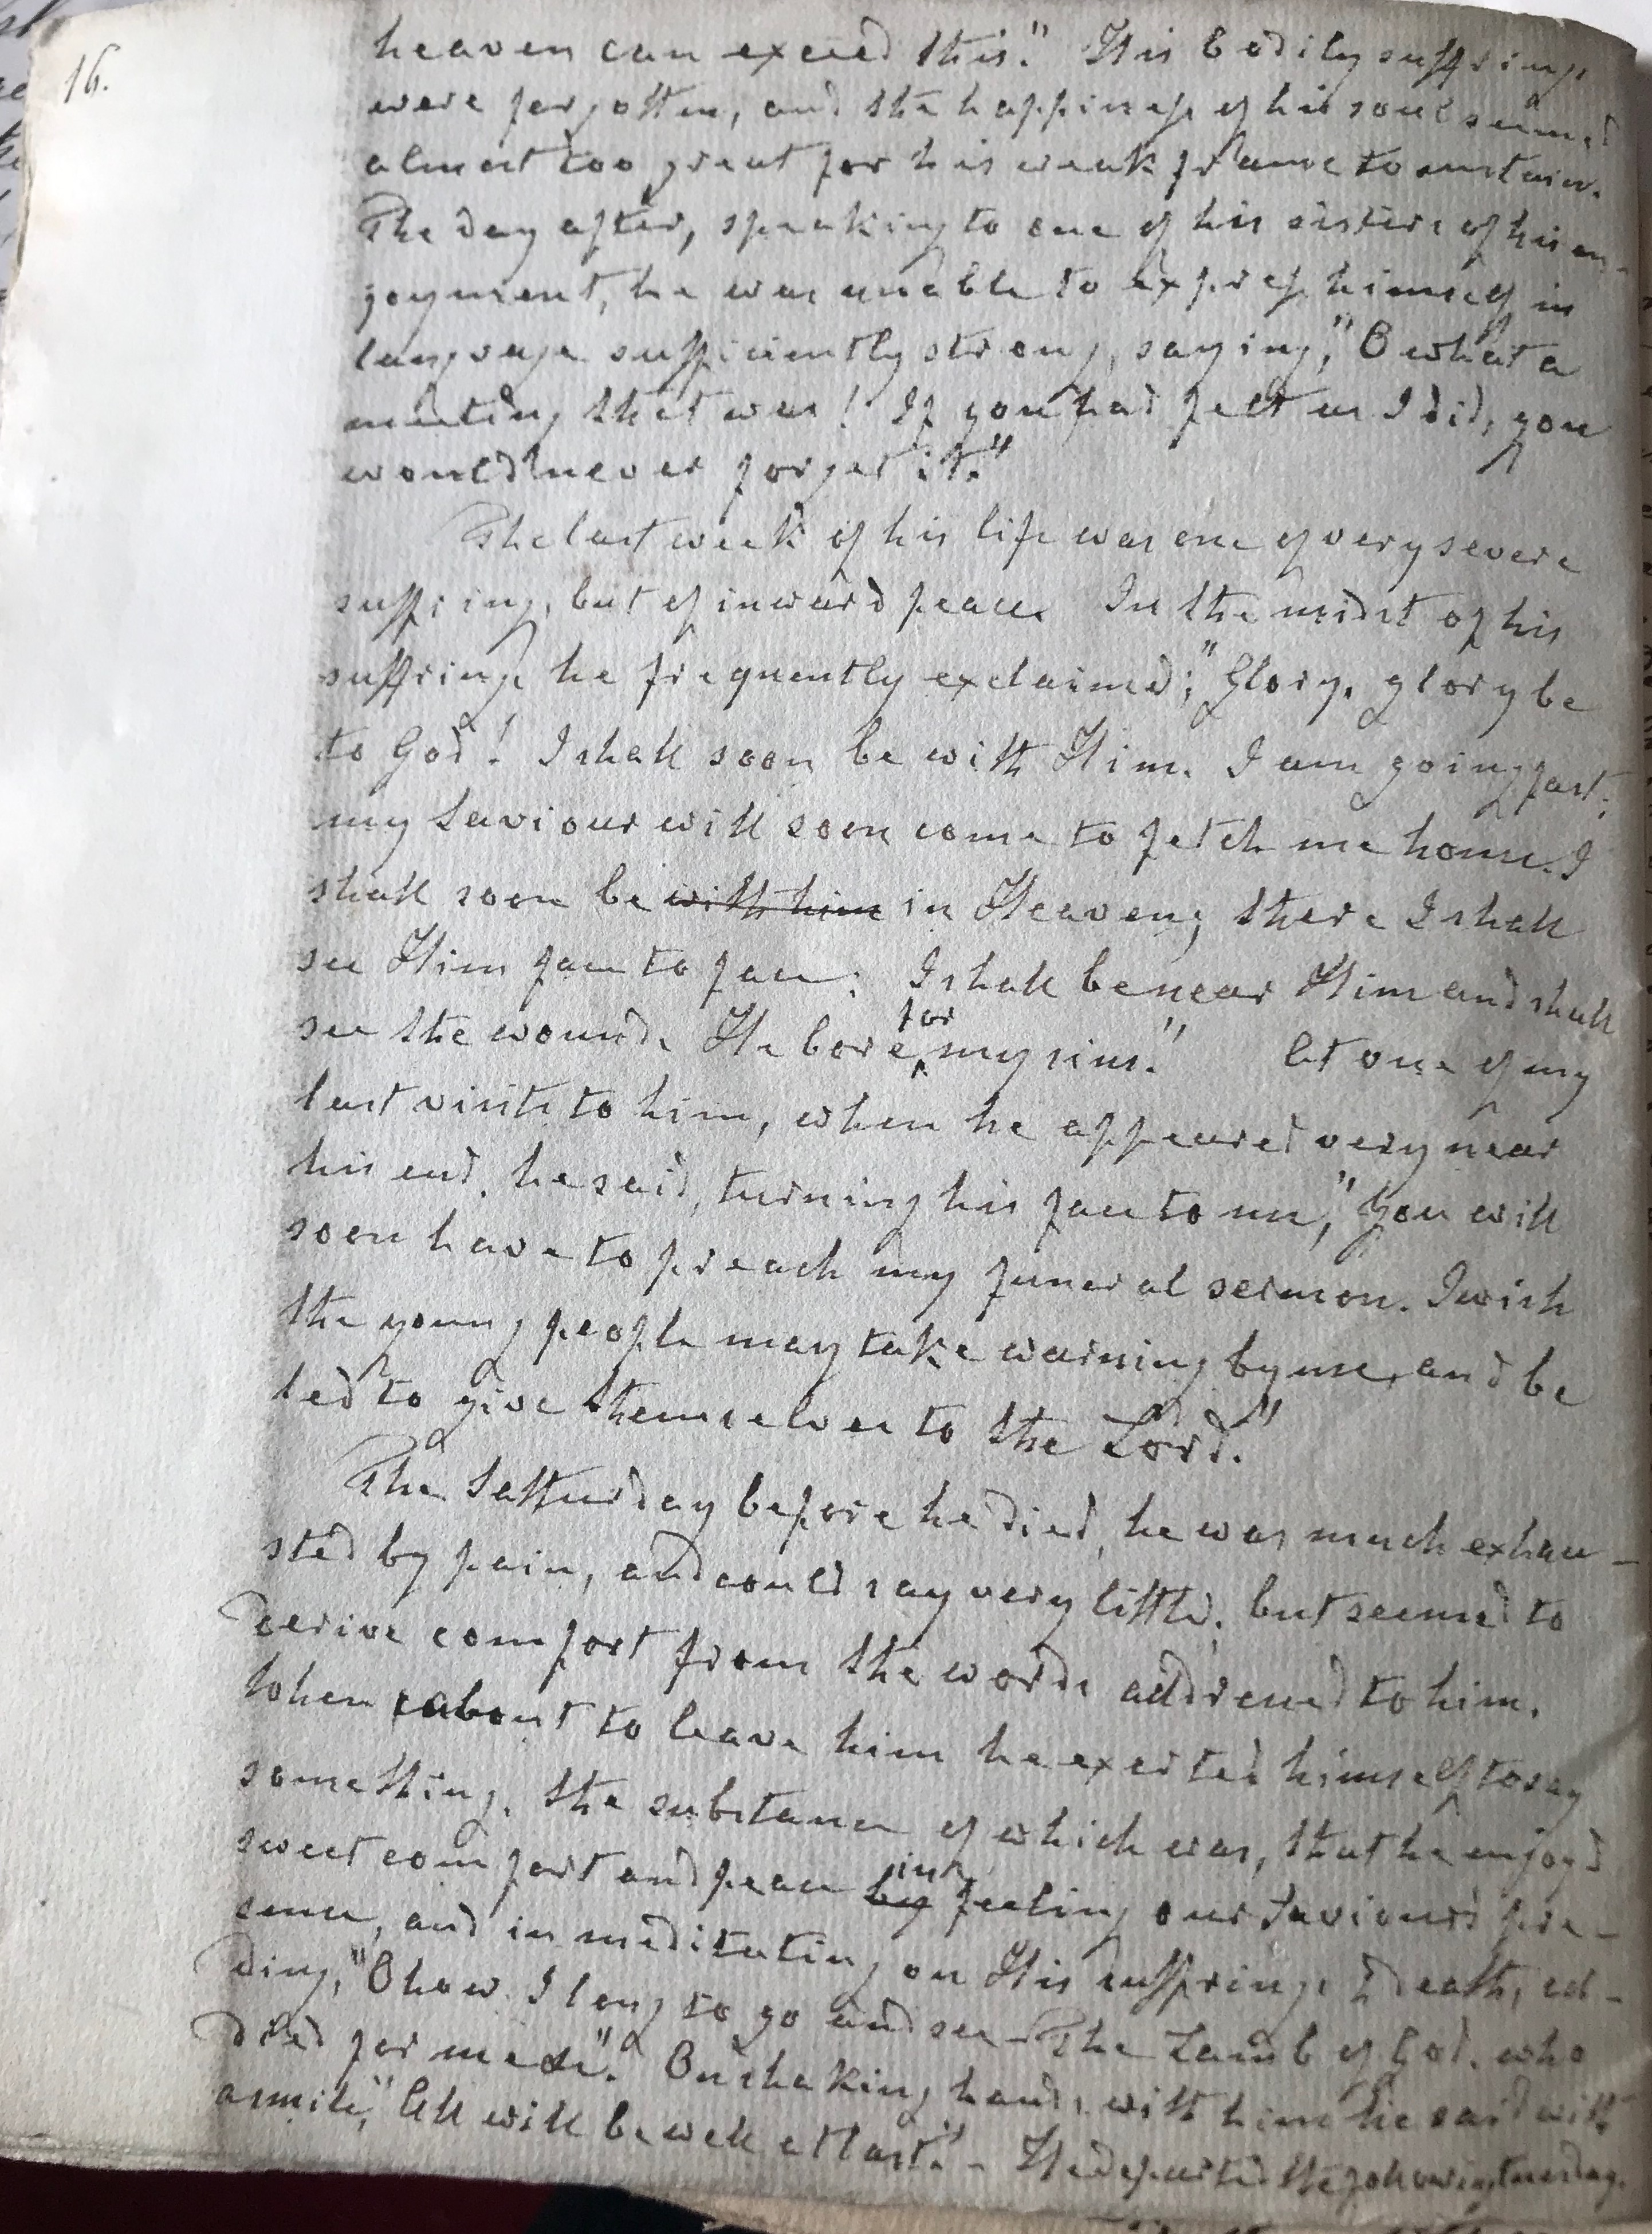 16.
heaven can exceed this." His bodily suffrings
were forgotten, and the happiness of his soul seemed
almost too great for his weak frame to sustain.
The day after, speaking to one of his sisters of his en-
joyment, he was unable to express himself in
language sufficiently strong, saying, "O what a
meeting that was! If you had felt as I did, you
would never forget it."
The last week of his life was one of very severe
suffring, but of inward peace. In the midst of his
suffrings he frequently exclaimed; "Glory, glory be
to God! I shall soon be with Him. I am going fast;
my Saviour will soon come to fetch me home. I
shall soon be with him in Heaven; there I shall
see Him face to face; I shall be near Him and shall
see the wounds He bore for my sins." At one of my
last visits to him, when he appeared very near
his end, he said, turning his face to me, "You will
soon have to preach my funeral sermon. I wish
the young people may take warning by me, and be
led to give themselves to the Lord."
The Satturday before he died, he was much exhau-
sted by pain, and could say very little, but seemed to
derive comfort from the words addressed to him.
When about to leave him he exerted himself to say
something, the substance of which was, that he enjoyd
sweet comfort and peace by in feeling our Saviour's pre-
sence, and in meditating on His suffrings & death, ad-
ding, "O how I long to go and see The Lamb of God, who
died for me." On shaking hands with him he said with
a smile, "All will be well at last." - He departed the following tuesday.